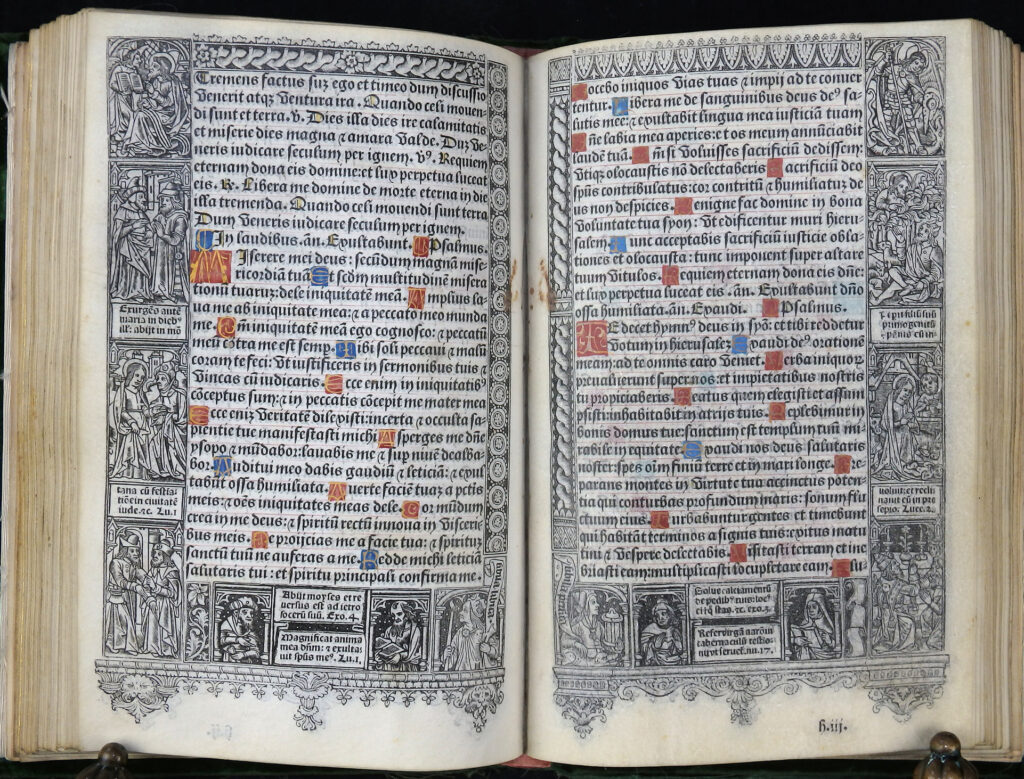 Tremens factus suȝ ego et timeo dum discussio
Venerit atqȝ Ventura ira. Quando celi mouen
di sunt et terra. v̄. Dies illa dies ire calamitatis
et miserie dies magna ⁊ amara Valde. Duȝ Ve
neris iudicare seculum per ignem. v̄ꝰ. Requiem
eternam dona eis domine: et luȝ perpetua luceat
eis. R̄. Libera me domine de morte eterna in die
illa tremenda. Quando celi mouendi sunt terra
Dum Veneris iudicare seculum per ignem.
In laudibus. an̄. Exultabunt. Psalmus.
Miserere mei deus: secūdum magnā mise
ricordiā tuā. Et scd̄m multitudinē misera
tionū tuaruȝ: dele iniquitatē meā. Amplius la
ua me ab iniquitate mea: ⁊ a peccato meo munda
me. Qm̄ iniquitatē meā ego cognosco: ⁊ peccatū
meū cōtra me est semp. Tibi soli peccaui ⁊ malū
coram te feci: Vt iustificeris in sermonibus tuis ⁊
Vincas cū iudicaris. Ecce enim in iniquitatibꝰ
cōceptus sum: ⁊ in peccatis cōcepit me mater mea
Ecce eniȝ Veritatē dilexisti: incerta ⁊ occulta sa
pientie tue manifestasti michi. Asperges me dn̄e
ysopo ⁊ mūdabor: lauabis me ⁊ suꝑ niuē dealba
bor. Auditui meo dabis gaudiū ⁊ leticiā: ⁊ exul
tabūt ossa humiliata. Auerte faciē tuaȝ a pctis
meis: ⁊ oēs iniquitates meas dele. Cor mūdum
crea in me deus: ⁊ spiritū rectū innoua in Visceri
bus meis. Ne proijcias me a facie tua: ⁊ spirituȝ
sanctū tuū ne auferas a me. Redde michi leticiā
salutaris tui: et spiritu principali confirma me.
Exurgēs autē
maria in diebꝰ
ill': abijt in mō
tana cū festia/
tiōe in ciuitatē
iude ⁊c. Lu.1
Abijt moyses et re
uersus est ad ietro
socerū suū. Exo.4.
Magnificat anima
mea dn̄m: ⁊ exulta/
uit sp̄us meꝰ. Lu.1.
Docebo iniquos Vias tuas ⁊ impij ad te conuer
tentur. Libera me de sanguinibus deus deꝰ sa-
lutis mee: ⁊ exultabit lingua mea iusticiā tuam
Dn̄e labia mea aperies: et os meum annūciabit
laudē tuā. Qm̄ si Voluisses sacrificiū dedissem:
Vtiqȝ olocaustis nō delectaberis Sacrificiū deo
sp̄us contribulatus: cor contritū ⁊ humiliatuȝ de
us non despicies. Benigne fac domine in bona
Voluntate tua syon: Vt edificentur muri hieru-
salem. Tunc acceptabis sacrificiū iusticie obla
tiones et olocausta: tunc imponent super altare
tuum Vitulos. Requiem eternam dona eis dn̄e:
et luȝ perpetua luceat eis. an̄. Exultabunt dn̄o
ossa humiliata. an̄. Exaudi. Psalmus.
Te decet hymnꝰ deus in syō: et tibi reddetur
Votum in hierusalē. Exaudi deꝰ orationē
meam: ad te omnis caro Veniet. Verba iniquor
preualuerunt super nos: et impietatibus nostris
tu propiciaberis. Beatus quem elegisti et assum
psisti: inhabitabit in atrijs tuis. Replebimur in
bonis domus tue: sanctum est templum tuū mi
rabile in equitate Exaudi nos deus salutaris
noster: spes oim finiū terre et in mari longe. Pre
parans montes in Virtute tua accinctus poten-
tia: qui conturbas profundum maris: sonum flu
ctuum eius. Turbabuntur gentes et timebunt
qui habitāt terminos a signis tuis: exitus matu
tini ⁊ Vespere delectabis. Visitasti terram et ine
briasti eam: multiplicasti locupletare eam. Flu
primogenitū
Solue calciamentū
de pedibꝰ tuis: locꝰ
Refer virgā aaron in
tabernaculū testio-
Nu.17.
h.iij.